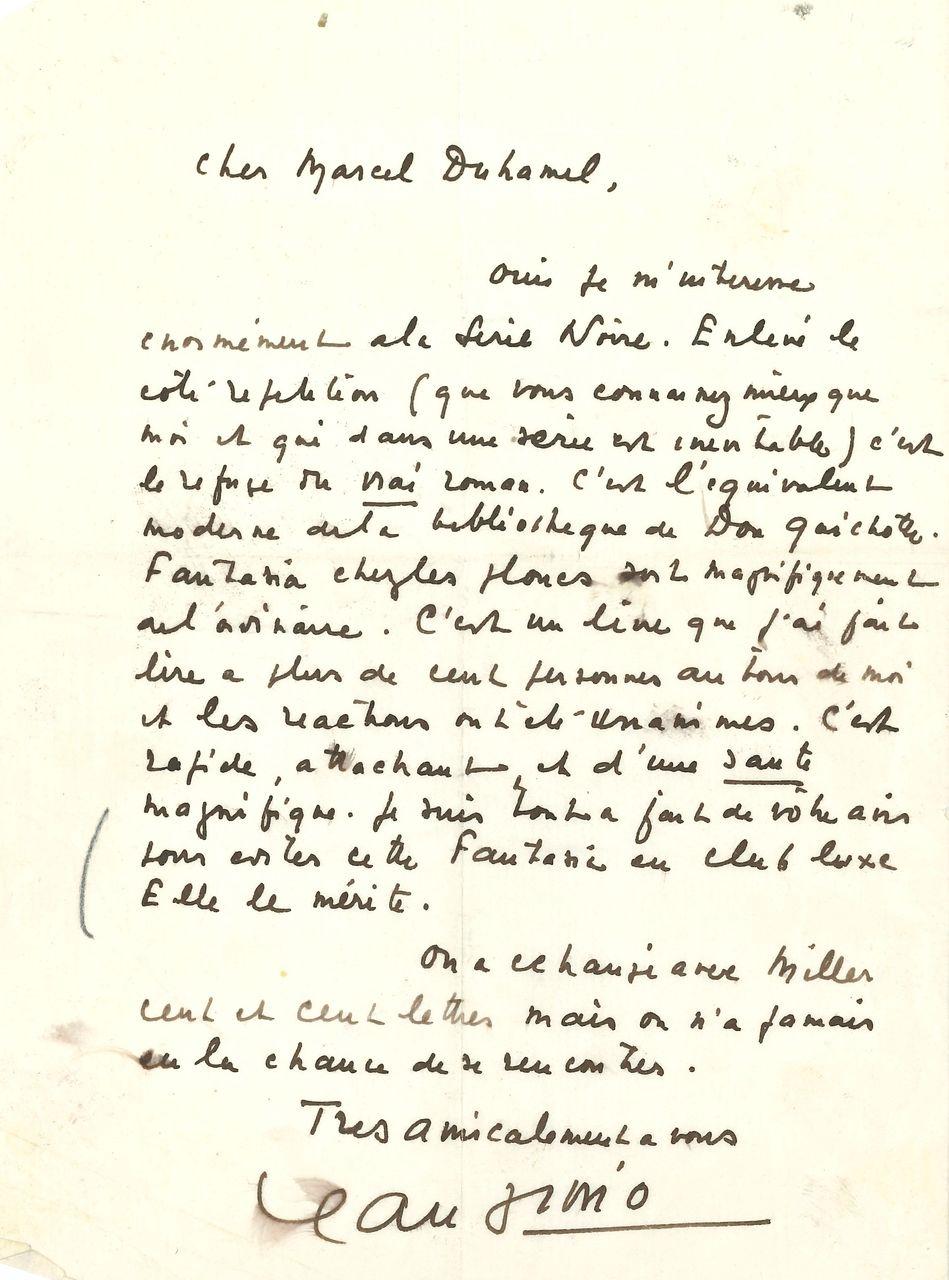 Cher Marcel Duhamel,
Oui je m'interesse
enormément a la Serie Noire. Enlevé le
côté repetition (que vous connaissez mieux que
moi et qui dans une serie est inevitable) c'est
le refuge du vrai roman. C'est l'equivalent
moderne de la bibliotheque de Don Quichotte.
Fantasia chez les ploucs sort magnifiquement
de l'ordinaire. C'est un livre que j'ai fait
lire a plus de cent personnes autour de moi
et les reactions ont été unanimes. C'est
rapide, attachant, et d'une santé
magnifique. Je suis tout a fait de votre avis
pour editer cette Fantasia en club luxe
Elle le mérite.
On a echangé avec Miller
cent et cent lettres mais on n'a jamais
eu la chance de se rencontrer.
Tres amicalement a vous
Jean Giono